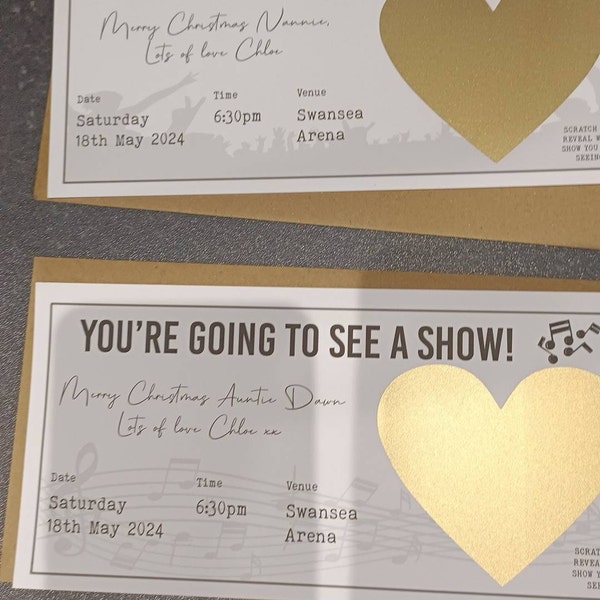 Merry Christmas Nannie,
Lots of love Chloe
Date
Saturday
18th May 2024
Time
6:30pm
Venue
Swansea
Arena
SCRATCH
REVEAL
SHOW YOU
YOU'RE GOING TO SEE A SHOW!
Merry Christmas Auntie Dawn
Lots of love Chloe xx
Date
Saturday
18th May 2024
Time
6:30pm
Venue
Swansea
Arena
REVEAL